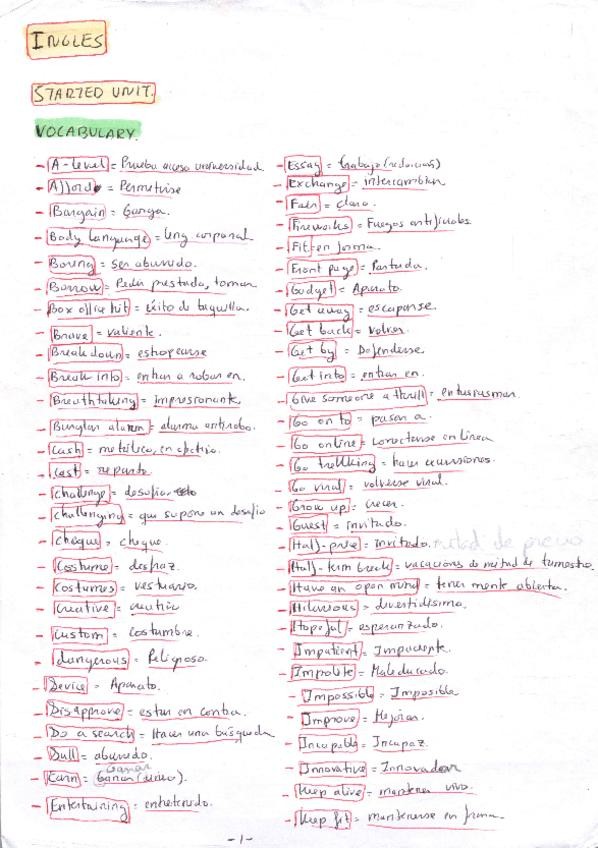 INGLES
STARTED UNIT.
VOCABULARY.
- A-level = Prueba acceso universidad
- Afford = Permitirse
- Bargain = Ganga.
- Body language = leng corporal
- Boring = ser aburrido.
- Borrow = Pedir prestado, tomar
- Box office hit = éxito de taquilla.
- Brave = valiente.
- Break down = estropearse
- Break into = entrar a robar en.
- Breathtaking = impresionante
- Burglar alarm = alarma antirrobo.
- Cash = metálico, en efectivo.
- Cast = reparto.
- Challenge = desafio
- Challenging = que supone un desafio
- cheque = cheque.
- Costume = disfraz.
- Costumes = vestuario.
- Creative = creativo
- Custom = costumbre.
- dangerous = Peligroso.
- Device = Aparato.
- Disapprove = estar en contra.
- Do a search = Hacer una búsqueda
- Dull = aburrido.
- Earn = Ganar (dinero).
- Entertaining = entretenido.
- Essay = trabajo (redacción)
- Exchange = intercambiar
- Fair = claro.
- Fireworks = Fuegos artificiales
- Fit = en forma.
- Front page = Portada.
- Gadget = Aparato.
- Get away = escaparse.
- Get back = volver.
- Get by = Defenderse.
- Get into = entrar en.
- Give someone a thrill = entusiasmar.
- Go on to = pasar a.
- Go online = conectarse en linea
- Go trekking = hacer excursiones.
- Go viral = volverse viral.
- Grow up = crecer.
- Guest = invitado.
- Half-price = invitado. mitad de precio
- Half-term break = vacaciones de mitad de trimestre.
- Have an open mind = tener mente abierta.
- Hilarious = divertidisima.
- Hopeful = esperanzado.
- Impatient = Impaciente.
- Impolite = Maleducado.
- Impossible = Imposible
- Improve = Mejorar.
- Incapable = Incapaz.
- Innovative = Innovador
- Keep alive = mantener vivo.
- Keep fit = mantenerse en forma.
- 1 -